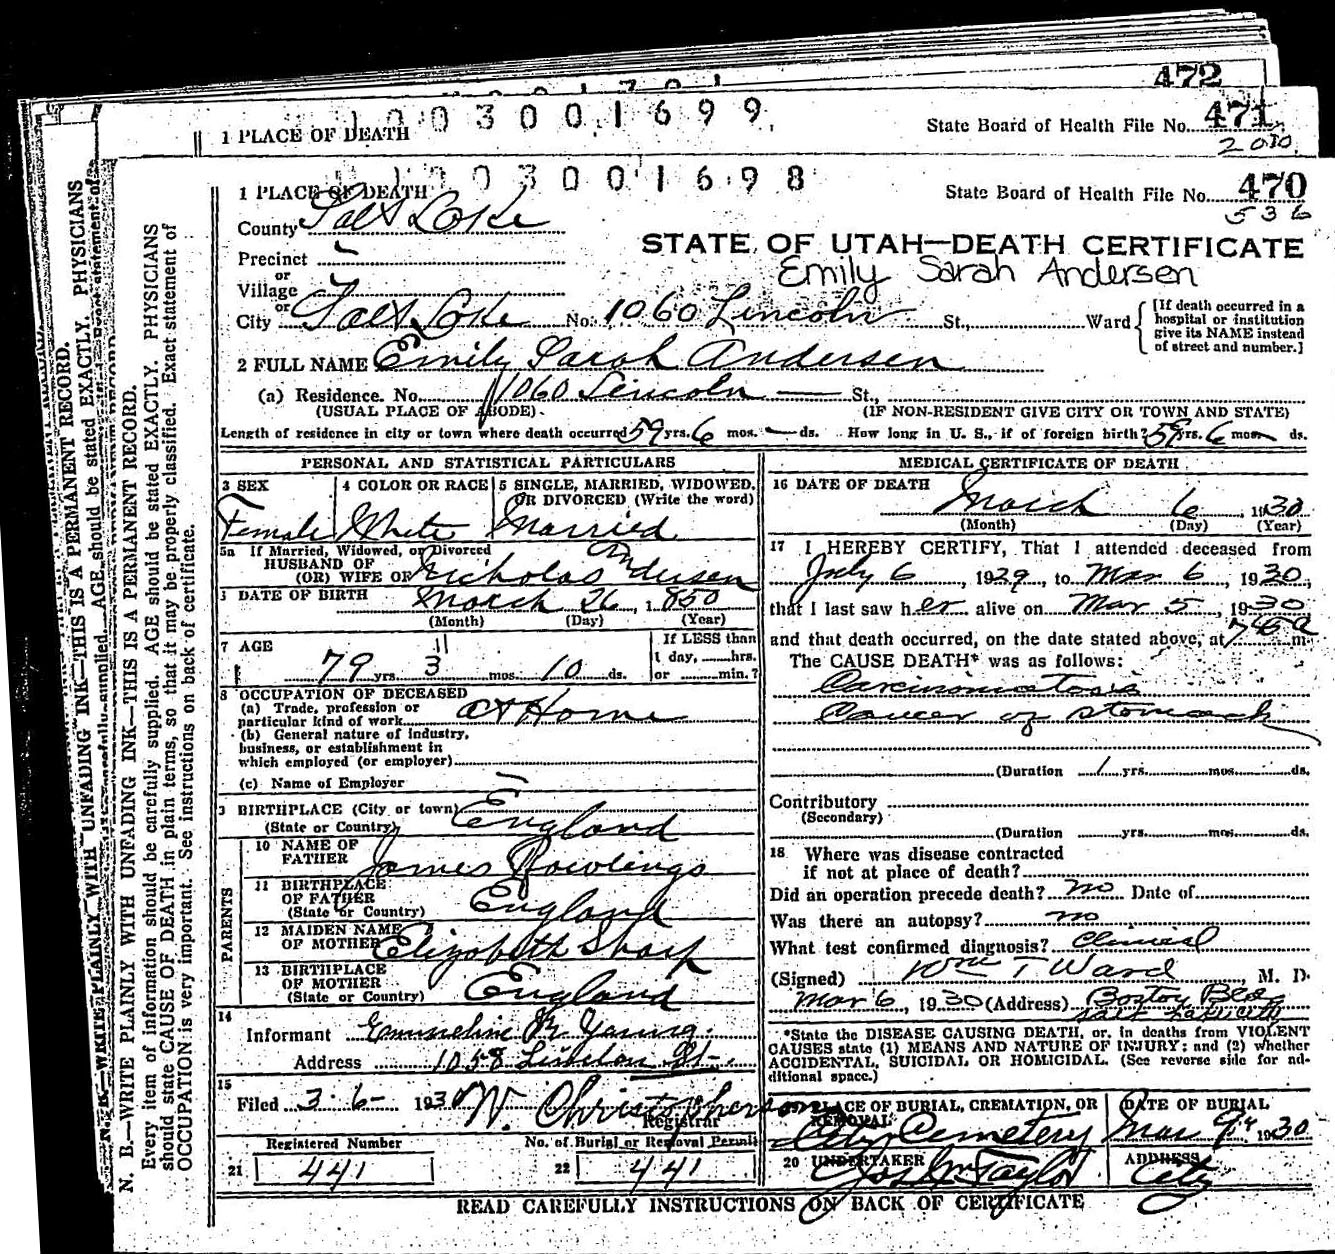 472
1 0 0 3 0 0 1 6 9 9
1 PLACE OF DEATH
State Board of Health File No. 471
2000
1 0 0 3 0 0 1 6 9 8
1 PLACE OF DEATH
State Board of Health File No. 470
536
County Salt Lake
STATE OF UTAH—DEATH CERTIFICATE
Precinct
Emily Sarah Andersen
or
Village
or
City Salt Lake No. 1060 Lincoln St., Ward
[If death occurred in a hospital or institution give its NAME instead of street and number.]
2 FULL NAME Emily Sarah Andersen
(a) Residence. No. 1060 Lincoln St.,
(USUAL PLACE OF ABODE) (IF NON-RESIDENT GIVE CITY OR TOWN AND STATE)
Length of residence in city or town where death occurred 59 yrs. 6 mos. — ds. How long in U. S., if of foreign birth? 59 yrs. 6 mos. ds.
PERSONAL AND STATISTICAL PARTICULARS
3 SEX
Female
4 COLOR OR RACE
White
5 SINGLE, MARRIED, WIDOWED, OR DIVORCED (Write the word)
Married
5a If Married, Widowed, or Divorced
HUSBAND OF
(OR) WIFE OF Nicholas Andersen
DATE OF BIRTH March 26, 1850
(Month) (Day) (Year)
7 AGE
79 yrs. 3 11 mos. 10 ds.
If LESS than
1 day, hrs.
or min.?
8 OCCUPATION OF DECEASED
(a) Trade, profession or
particular kind of work At Home
(b) General nature of industry,
business, or establishment in
which employed (or employer)
(c) Name of Employer
BIRTHPLACE (City or town)
(State or Country) England
PARENTS
10 NAME OF
FATHER James Rowlings
11 BIRTHPLACE
OF FATHER
(State or Country) England
12 MAIDEN NAME
OF MOTHER Elizabeth Sharp
13 BIRTHPLACE
OF MOTHER
(State or Country) England
14
Informant Emmeline R. Young.
Address 1058 St.
15
Filed 3-6- 1930 W. Christopherson
Registrar
Registered Number
21 441
No. of Burial or Removal Permit
22 441
MEDICAL CERTIFICATE OF DEATH
16 DATE OF DEATH
March 6, 1930
(Month) (Day) (Year)
17 I HEREBY CERTIFY, That I attended deceased from
July 6, 1929, to Mar 6, 1930,
that I last saw her alive on Mar 5, 1930
and that death occurred, on the date stated above, at m.
The CAUSE DEATH* was as follows:
Carcinomatosis
Cancer of Stomach
(Duration 1 yrs. mos. ds.
Contributory
(Secondary)
(Duration yrs. mos. ds.
18 Where was disease contracted
if not at place of death?
Did an operation precede death? no Date of
Was there an autopsy? no
What test confirmed diagnosis? Clinical
(Signed) Wm T Ward M. D.
Mar 6, 1930 (Address) Boston Bldg
Salt Lake City
*State the DISEASE CAUSING DEATH, or, in deaths from VIOLENT
CAUSES state (1) MEANS AND NATURE OF INJURY; and (2) whether
ACCIDENTAL, SUICIDAL OR HOMICIDAL. (See reverse side for ad-
ditional space.)
19 PLACE OF BURIAL, CREMATION, OR
REMOVAL
City Cemetery
DATE OF BURIAL
Mar 9, 1930
20 UNDERTAKER
Jos Wm Taylor
ADDRESS
City
READ CAREFULLY INSTRUCTIONS ON BACK OF CERTIFICATE
N. B.—WRITE PLAINLY WITH UNFADING INK—THIS IS A PERMANENT RECORD.
Every item of information should be carefully supplied. AGE should be stated EXACTLY. PHYSICIANS
should state CAUSE OF DEATH in plain terms, so that it may be properly classified. Exact statement of
OCCUPATION is very important. See instructions on back of certificate.